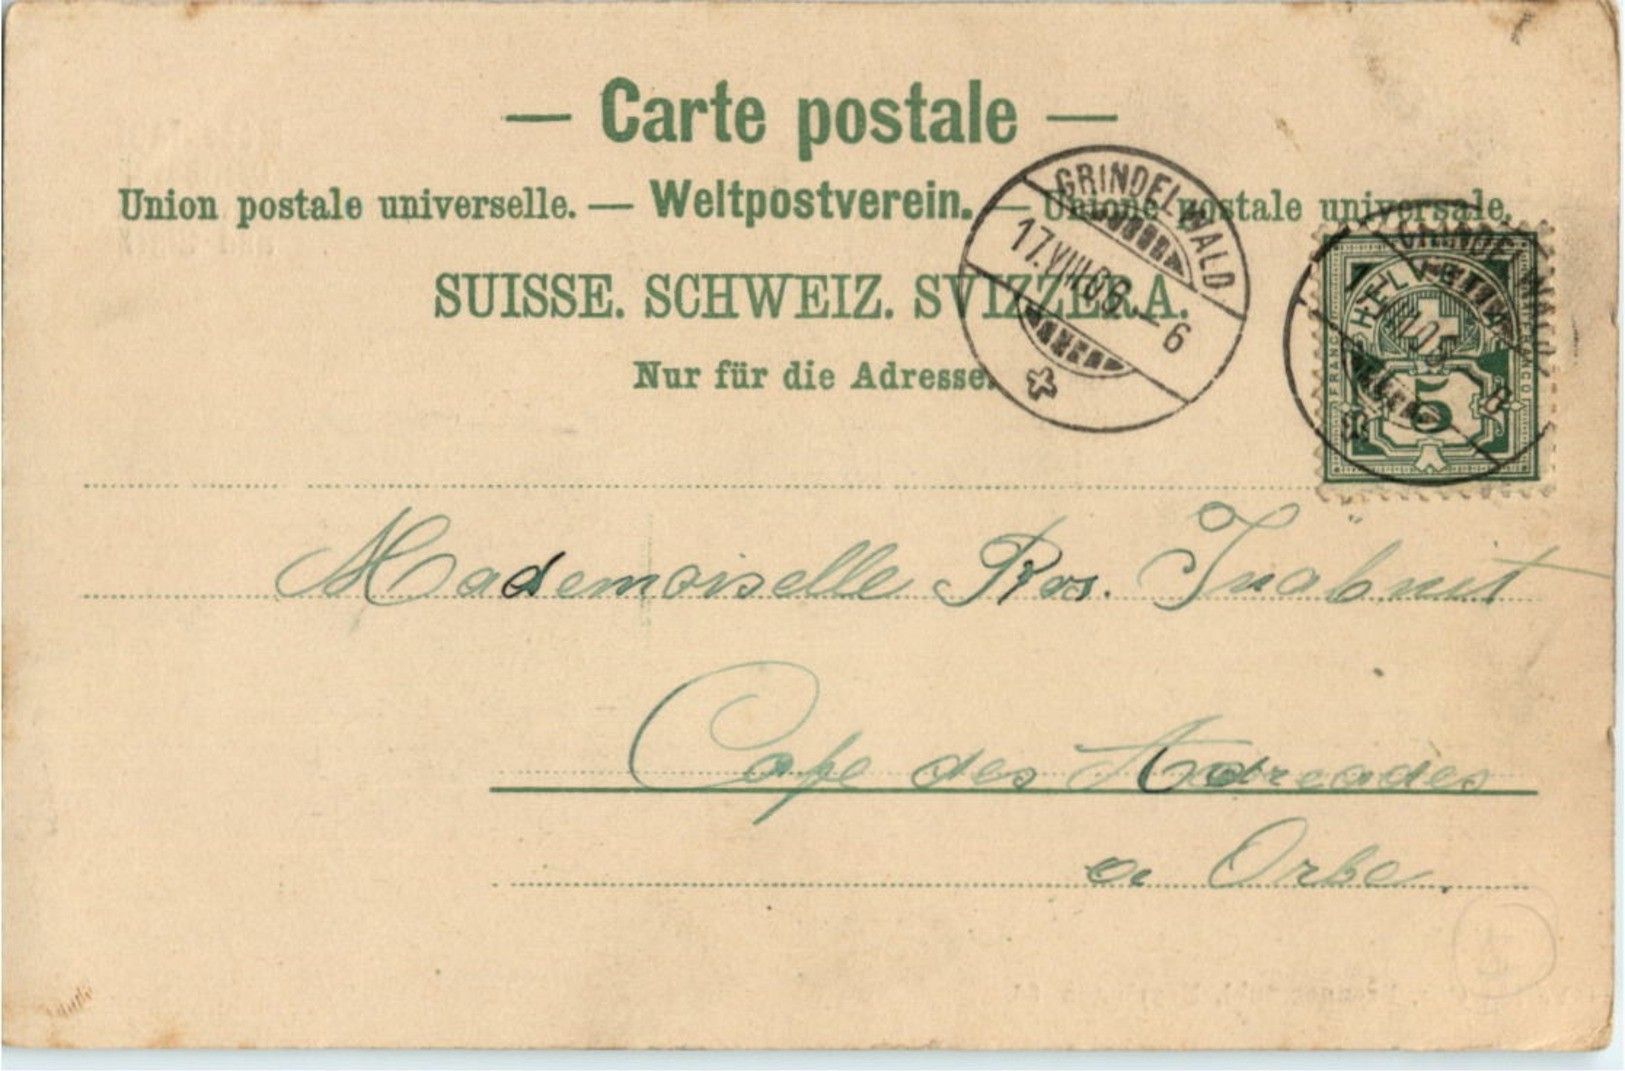 — Carte postale —
Union postale universelle. — Weltpostverein. — Unione postale universale.
SUISSE. SCHWEIZ. SVIZZERA.
Nur für die Adresse.
GRINDELWALD
17.VIII.06 – 6
HELVETIA
FRANCO
5
GRINDELWALD
Mademoiselle Ros. Inabnit
Cafe des
a Orbe.